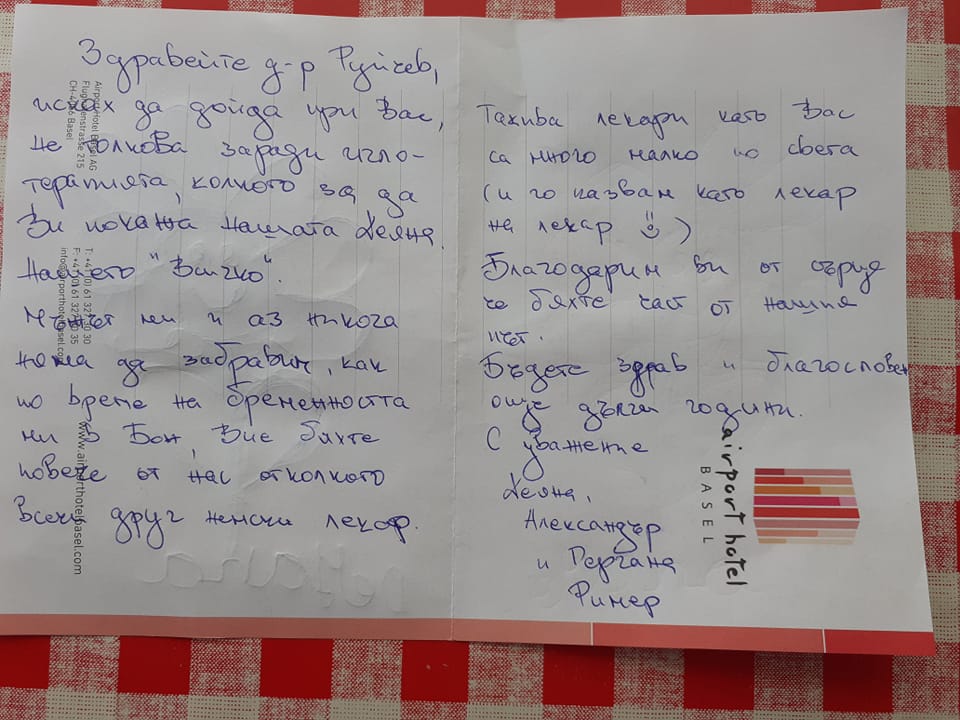 Здравейте д-р Руйчев,
исках да дойда при Вас,
не толкова заради игло-
терапията, колкото за да
Ви покажа нашата Деяна.
Нашето "Всичко".
Мъжът ми и аз никога
няма да забравим, как
по време на бременността
ми в Бон, Вие бяхте
повече от нас отколкото
Всеки друг женски лекар.
Такива лекари като Вас
са много малко по света
(и го казвам като лекар
на лекар )
Благодарим ви от сърце
че бяхте част от нашия
път.
Бъдете здрав и благословен
още дълги години.
С уважение
Деяна,
Александър
и Гергана
Ринер
Airporthotel Basel AG
Flughafenstrasse 215
CH-4056 Basel
T: +41 (0) 61 327 30 30
F: +41 (0) 61 327 30 35
info@airporthotelbasel.com
www.airporthotelbasel.com
airport hotel
BASEL